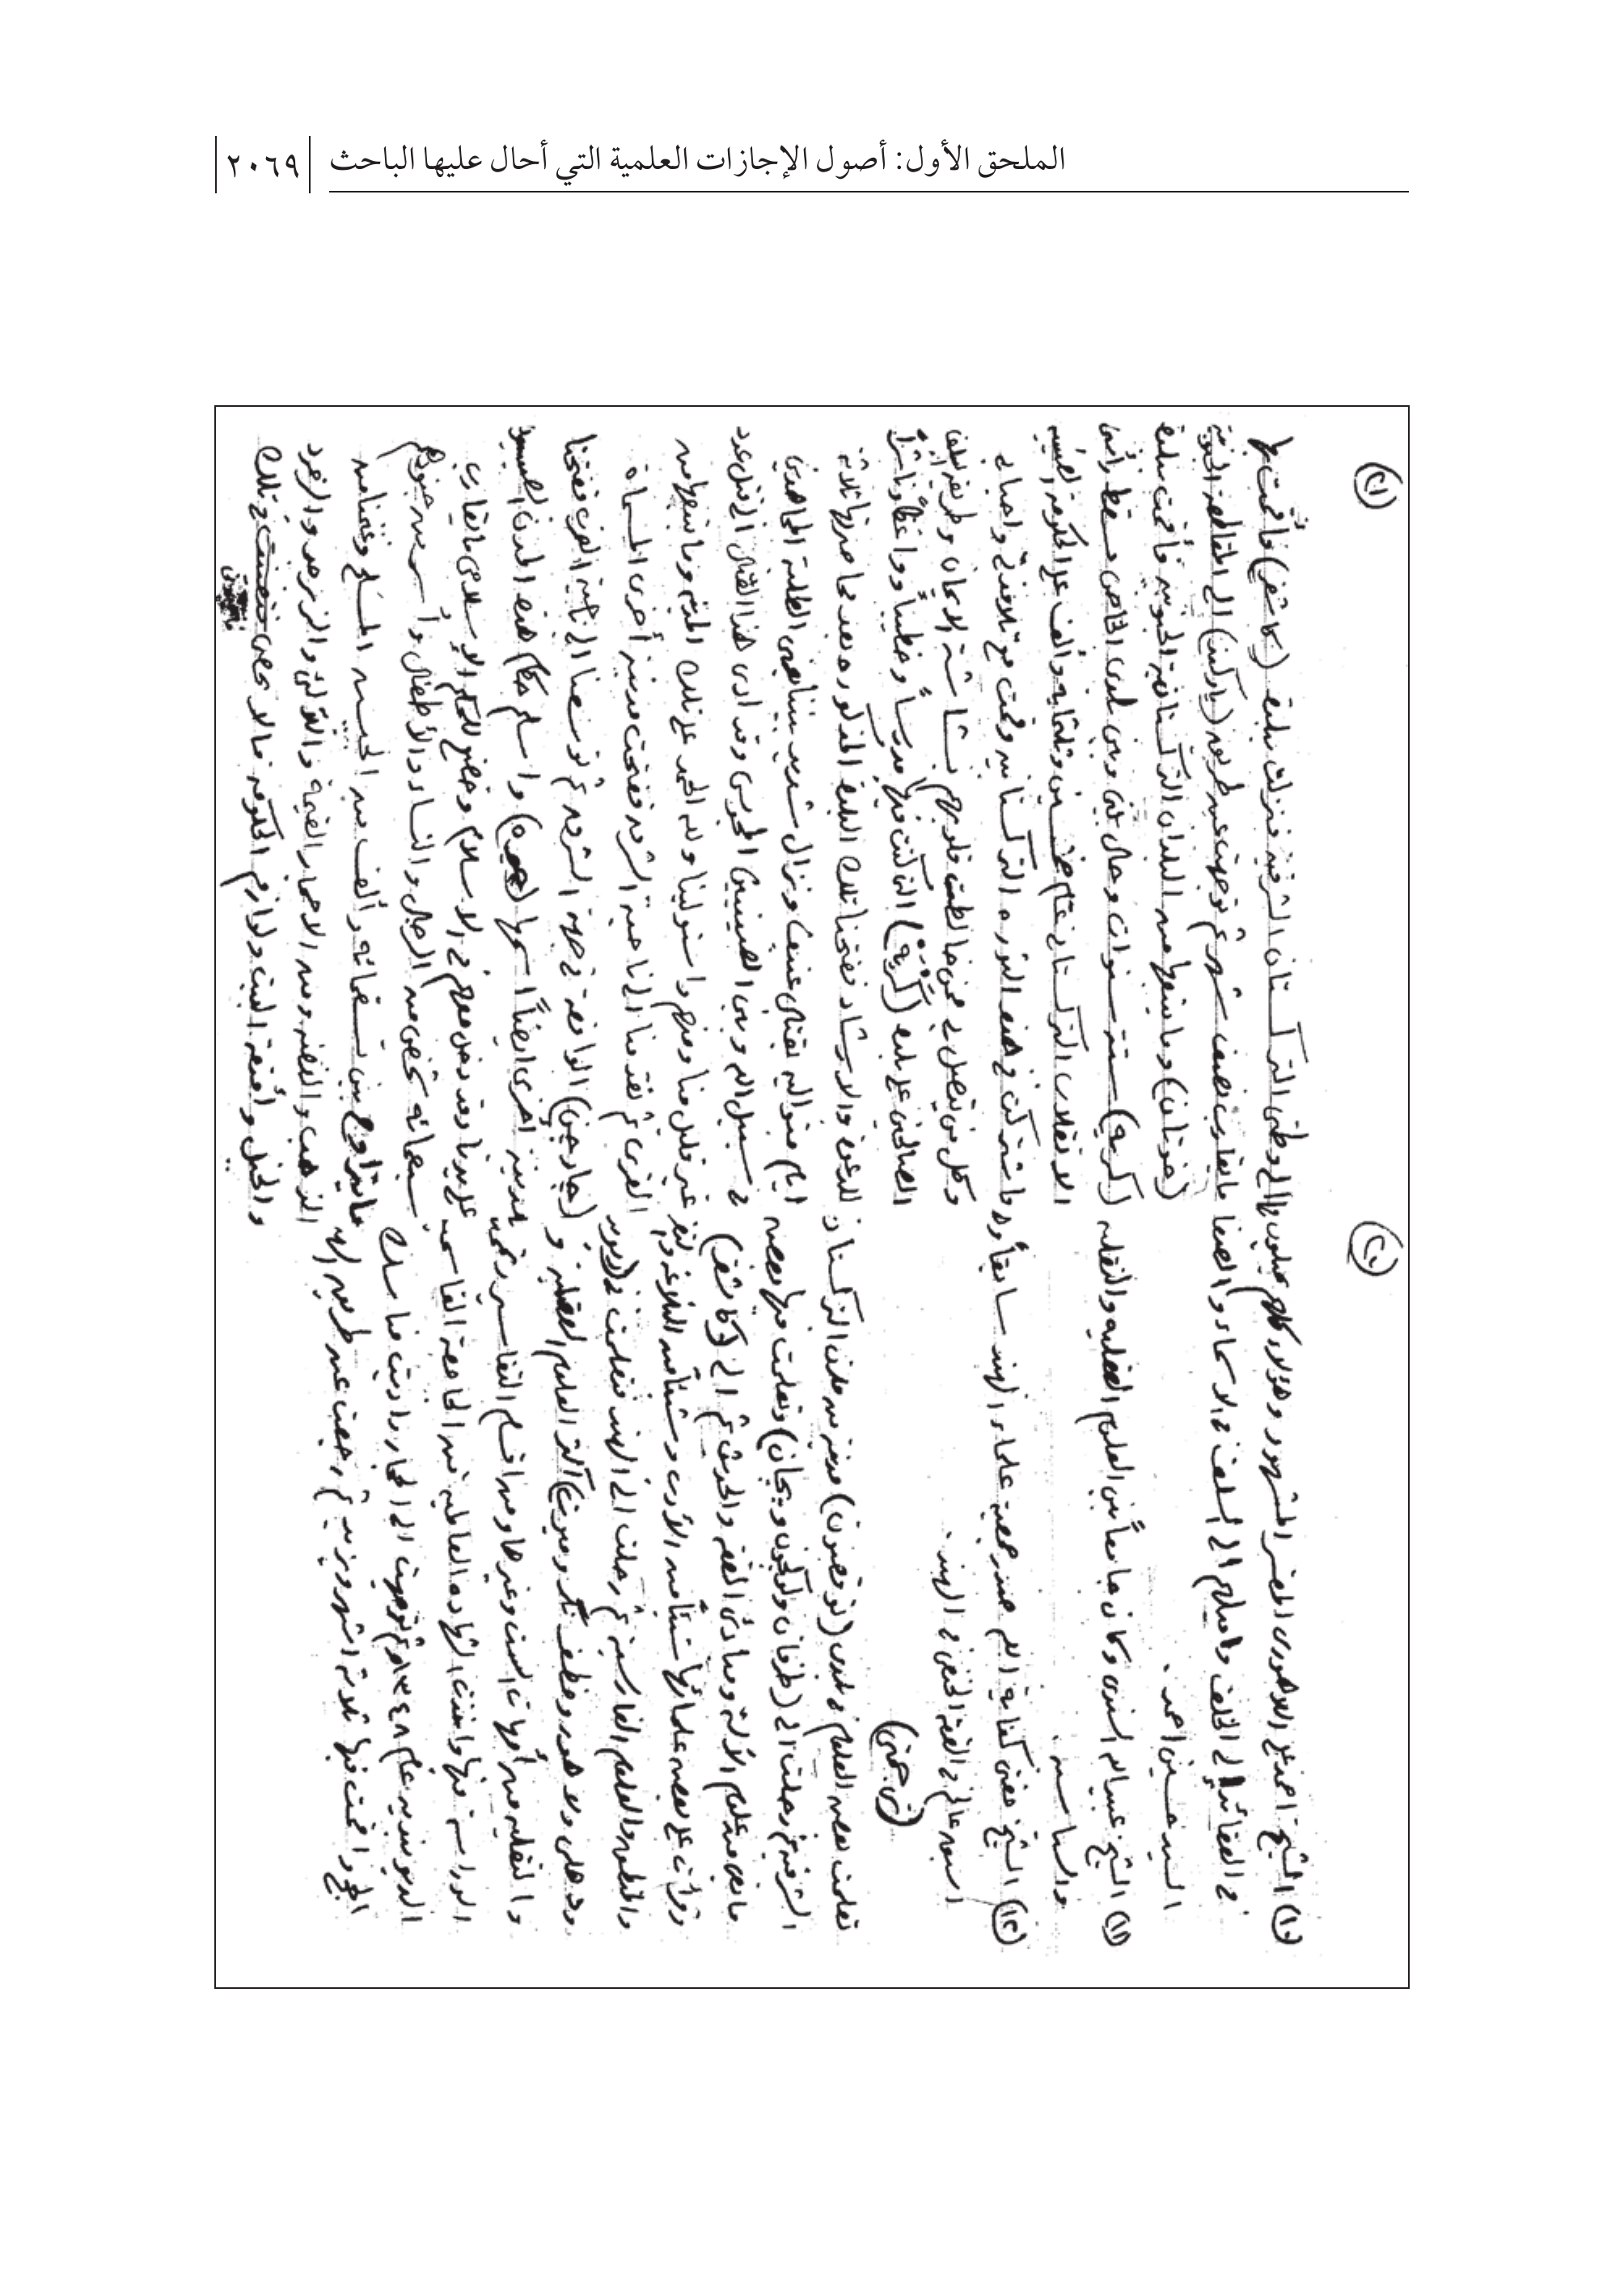 الملحق الأول: أصول الإجازات العلمية التي أحال عليها الباحث ٢٠٦٩
٢٠
(١٠) الشيخ احمد علي اللاهوري المفسر المشهور وهؤلاء كلهم يميلون
في العقائد إلى الخلف واميلهم الى السلف في الاسماء والصفات
السيد حسين احمد.
(١١) الشيخ عبيد الله السندي وكان جامعاً بين العلوم العقلية والنقلية
والسياسية.
(١٢) الشيخ مفتي كفاية الله صدر جمعية علماء الهند سابقاً وهو
اوسع عالم في الفقه الحنفي في الهند.
تعلمت بعض العلوم في بلدي مدينة من مدن التركستان
الشرقية ثم رحلت الى (طرفان ولكجن وپيجان) وتعلمت فيها بعض
من علوم الآلة ومبادئ الفقه والحديث ثم الى (كاشغر)
وقرأت على بعض علمائها شيئاً من الأدب وشيئاً من البلاغة
والمنطق والعلوم الفارسية ثم رحلت الى الهند فتعلمت في (ديوبند
ودهلي ولاهور وميروت) اكثر العلوم العقلية و
والنقلية من أمهات الست وغيرها ومن اقسام التفاسير وتمت
الدراسة فيها واخذت الشهادة العالمية من الجامعة القاسمية
الديوبندية عام ١٣٤٨ ثم توجهت الى الحجاز واديت مناسك
الحج واقمت فيها ثلاثة اشهر ويزيد ثم رجعت عن طريق الهند
٢١
إلى وطني التركستان الشرقية فنزلت ببلدة (كاشغر) فأقمت بها
ما يقارب نصف شهر ثم توجهت عن طريق (ياركند) الى المقاطعة الجنوبية
(خوتان) وما يتبعها من البلدان التركستانية الجنوبية فأقمت ببلدة
(كريه) ستة سنوات وحال بيني وبين بلدي الخاص مسقط رأسي
الانقلاب التركستاني عام خمسين وثلثمائة وألف على الحكومة الصينية
فاشتركت في هذه الثورة التركستانية وقمت مع تلامذتي واحبابي
وكل من يتصل بي ممن خالطت قلوبهم بشاشة الايمان وطريقة السلف
الصالحين على بلدة (كريه) التي كنت فيها مدرساً وخطيباً وواعظاً وناشراً
للدعوة والارشاد ففتحنا تلك البلدة المذكورة بعد محاصرتها ثلاثة
ايام متوالية بقتال عنيف ونزال شديد بيننا يعني الطلبة المجاهدين
في سبيل الله وبين الصينيين المجوس وقد ادى هذا القتال الى قتل عدد
غير قليل منا ومنهم واستولينا ولله الحمد على تلك المدينة وما يتبعها من
القرى ثم تقدمنا الى ناحية الشرق ففتحت مدينة أخرى المسماة
(چارچن) الواقعة في جهة الشرق ثم توسعنا الى ناحية الغرب ففتحنا
مدينة أخرى ايضاً اسمها (چيره) واسلم حكام هذه المدن الصينيون
على يدنا وقد دخل معهم في الاسلام وخضع للحكم الإسلامي ما يقارب
سبعمائة شخص من الرجال والنساء والأطفال وأسر من جنودهم
ما يتراوح بين تسعمائة وألف من الجيش المسلح وغنمنا من
الذهب والفضة ومن الاحجار القيمة واللآلئ والزمرد
والخيل وأمتعة البيت ولوازم الحكومة مالا يحصى في تلك